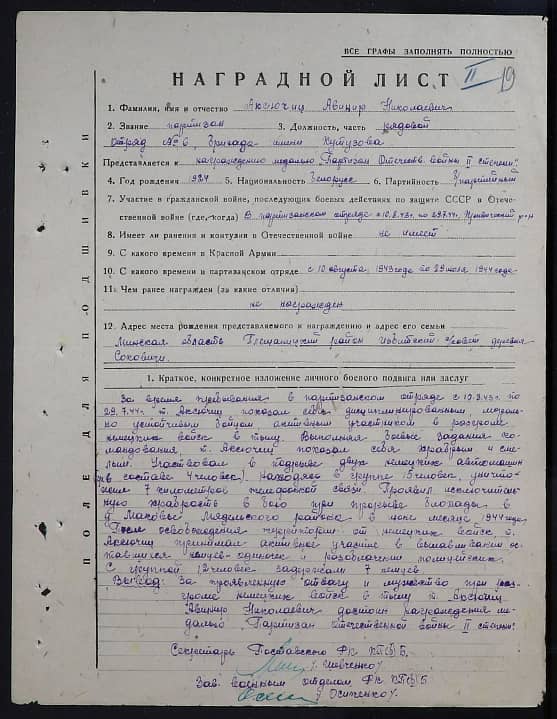 ВСЕ ГРАФЫ ЗАПОЛНЯТЬ ПОЛНОСТЬЮ
НАГРАДНОЙ ЛИСТ II 19
1. Фамилия, имя и отчество Аксючиц Авинир Николаевич
2. Звание партизан 3. Должность, часть рядовой
отряд № 6 бригада имени Кутузова
Представляется к награждению медалью "Партизан Отечеств. войны II степени"
4. Год рождения 1924 5. Национальность белорус 6. Партийность б/партийный
7. Участие в гражданской войне, последующих боевых действиях по защите СССР в Отече-
ственной войне (где, когда) В партизанском отряде с 10.8.43г. по 29.7.44г. р-н
8. Имеет ли ранения и контузия в Отечественной войне не имеет
9. С какого времени в Красной Армии
10. С какого времени в партизанском отряде с 10 августа 1943 года по 29 июля 1944 года
11. Чем ранее награжден (за какие отличия)
не награжден
12. Адрес места рождения представляемого к награждению и адрес его семьи
Минская область Плещаницкий район с/совет деревня
Соковичи.
ПОЛЕ ДЛЯ ПОДШИВКИ
1. Краткое, конкретное изложение личного боевого подвига или заслуг
За время пребывания в партизанском отряде с 10.8.43г. по
29.7.44г. т. Аксючиц показал себя дисциплинированным, морально
устойчивым бойцом, активным участником в разгроме
немецких войск в тылу. Выполняя боевые задания ко-
мандования т. Аксючиц показал себя храбрым и сме-
лым. Участвовал в подрыве двух немецких автомашин
(в составе 4 человек). Находясь в группе 15 человек, уничто-
жил 7 километров телефонной связи. Проявил исключитель-
ную храбрость в бою при прорыве блокады в
д. Маковье Мядельского района в июне месяце 1944 года.
После освобождения территории от немецких войск т.
Аксючиц принимал активное участие в вылавливании ос-
тавшихся немцев-одиночек и разоблачении пособников.
С группой 12 человек задержали 7 немцев
Вывод: За проявленную отвагу и мужество при раз-
громе немецких войск в тылу т. Аксючиц
Авинир Николаевич достоин награждения ме-
далью "Партизан Отечественной войны II степени".
Секретарь Поставского РК КП(б)Б.
/Шевченко/
Зав. военным отделом РК КП(б)Б
/Осипенко/